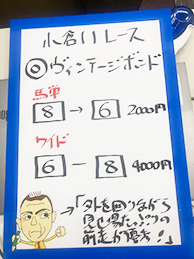 小倉11レース
◎ヴィンテージボンド
馬単
8→6 2000円
ワイド
6-8 4000円
→「外を回りながら
見せ場たっぷりの
前走が優秀!」